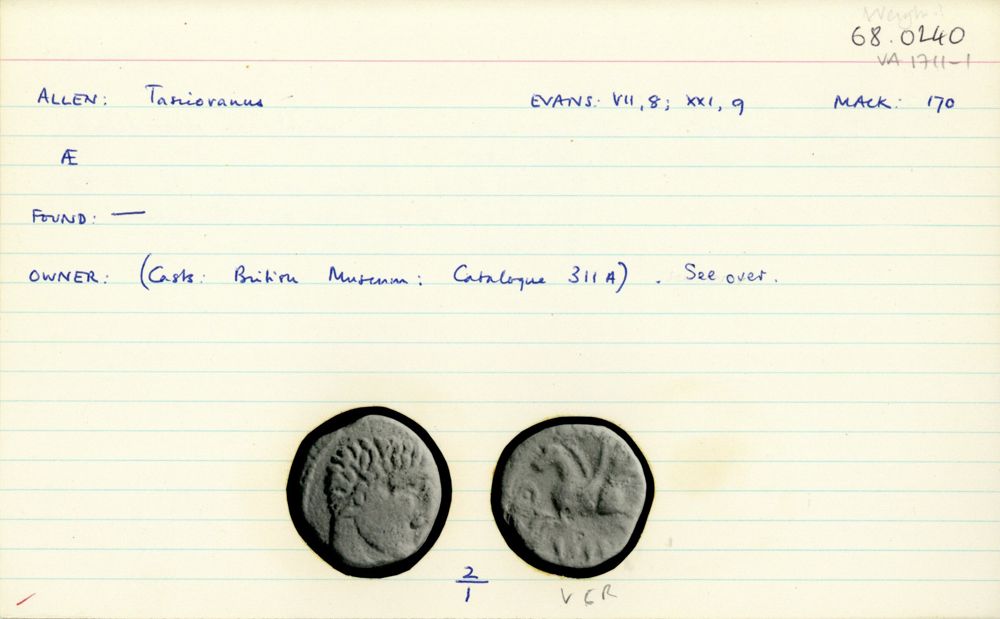 Weight:
68.0240
VA 1711-1
ALLEN: Tasciovanus EVANS: VII, 8; XXI, 9 MACK: 170
Æ
FOUND: —
OWNER: (Casts: British Museum: Catalogue 311A). See over.
2/1
VER